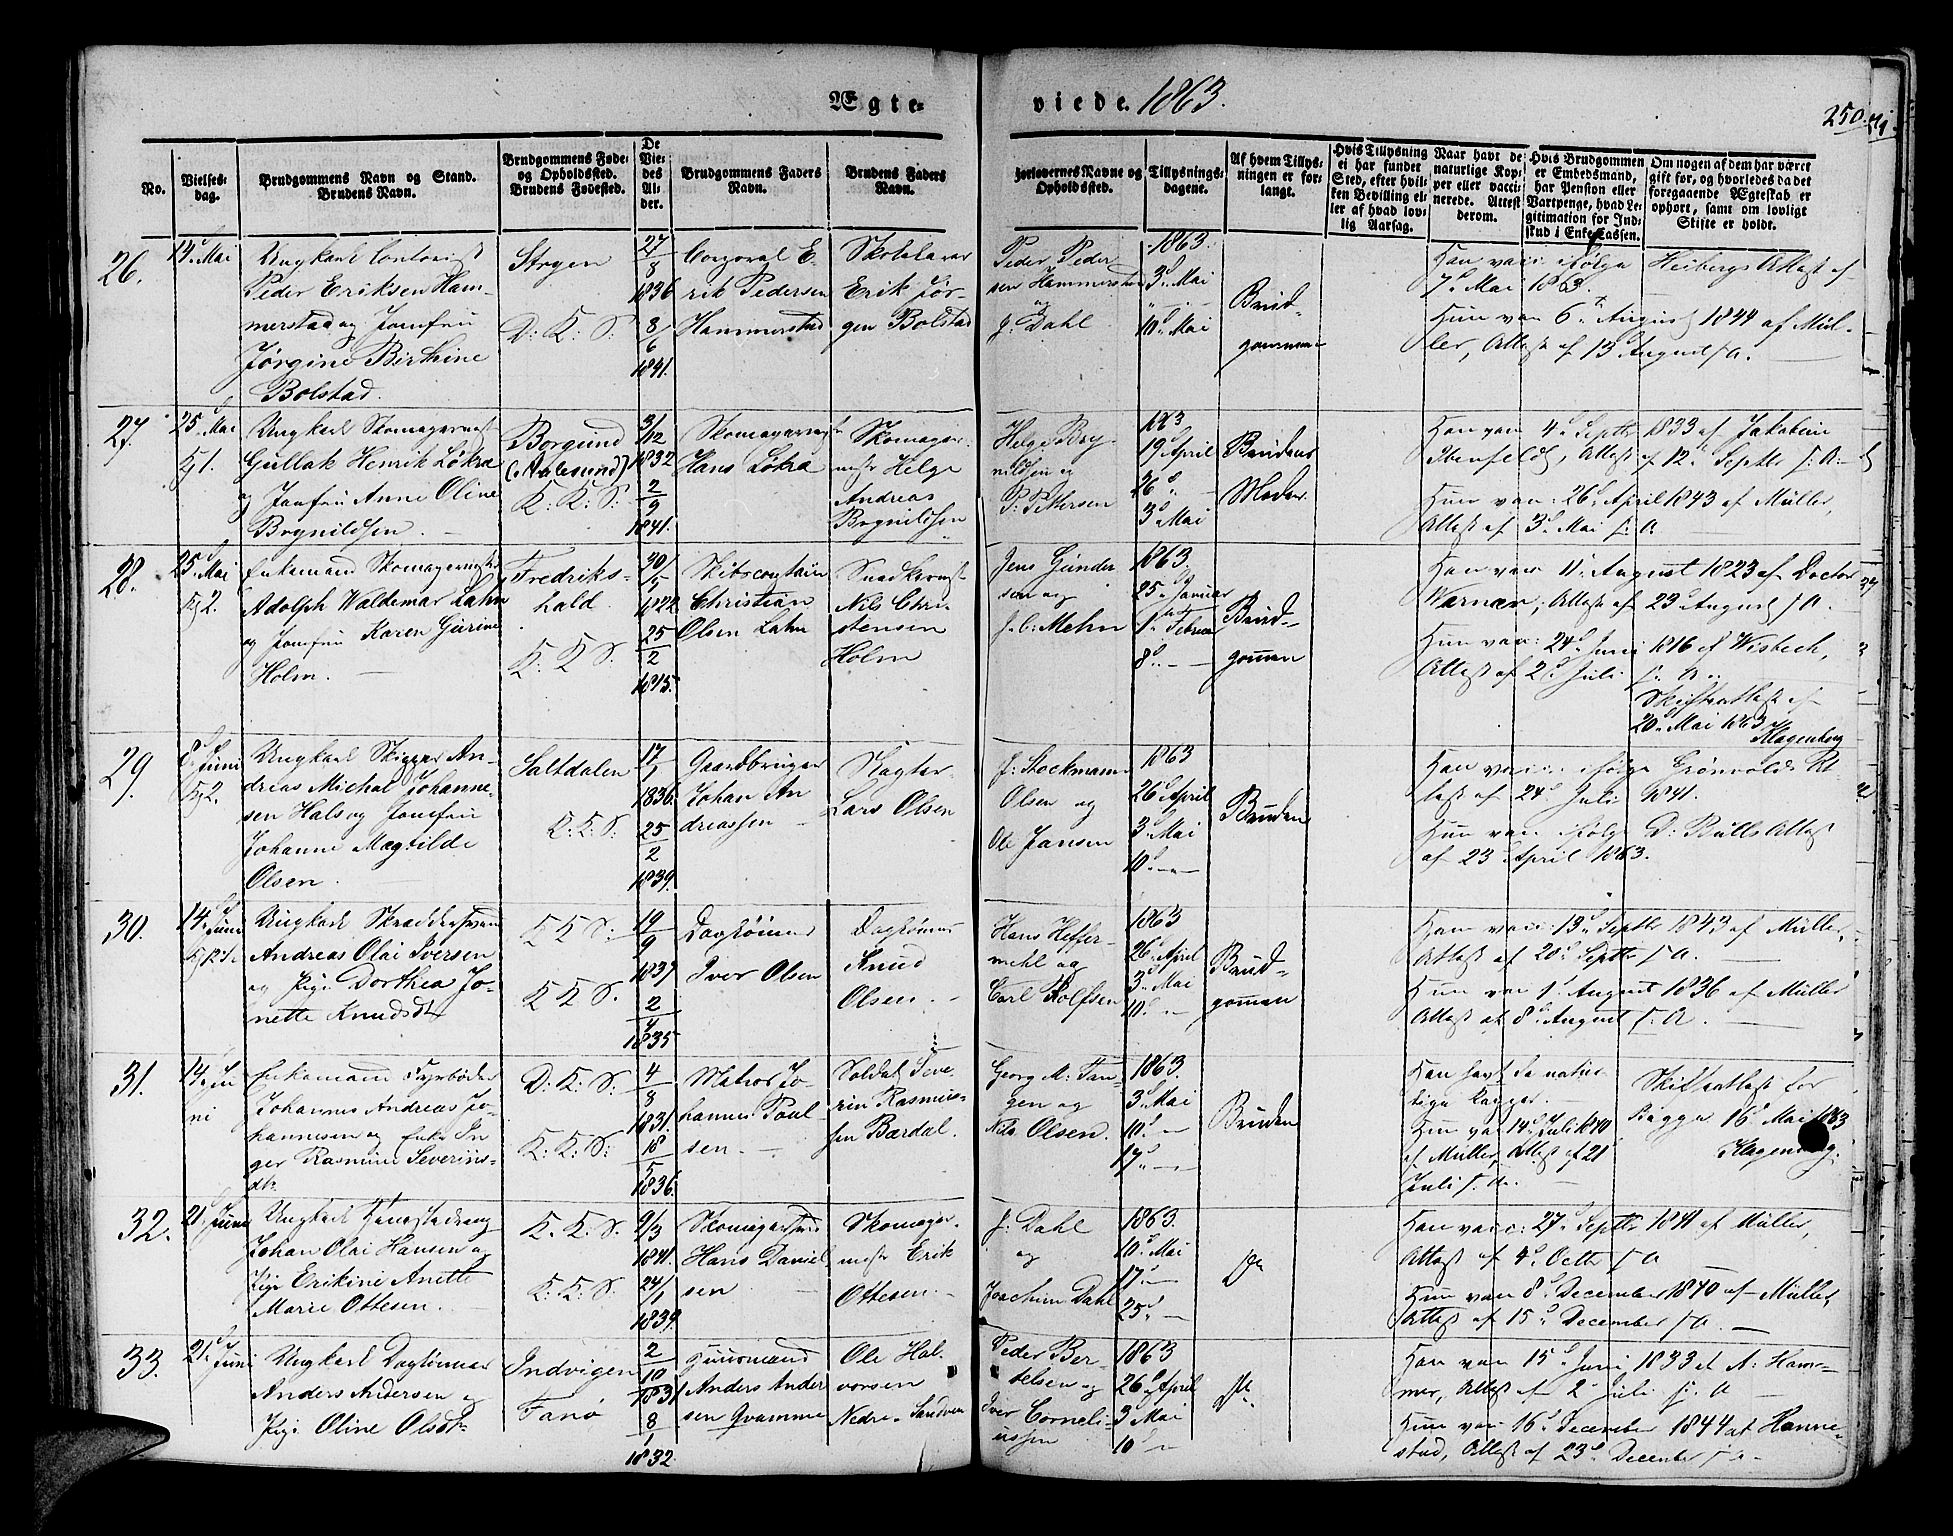 Ægte-
viede. 1863.
250.
No.
Vielses-
dag.
Brudgommens Navn og Stand.
Brudens Navn.
Brudgommens Føde-
og Opholdssted.
Brudens Fødested.
De
Vie-
des
Al-
der.
Brudgommens Faders
Navn.
Brudens Faders
Navn.
Forlovernes Navne og
Opholdssted.
Tillysnings-
dagene.
Af hvem Tillys-
ningen er for-
langt.
Hvis Tillysning
ei har fundet
Sted, efter hvil-
ken Bevilling el-
ler af hvad lov-
lig Aarsag.
Naar havt de
naturlige Kop-
per eller vacci-
nerede. Attest
derom.
Hvis Brudgommen
er Embedsmand,
har Pension eller
Vartpenge, hvad Le-
gitimation for Ind-
skud i Enke Cassen.
Om nogen af dem har været
gift før, og hvorledes da det
foregaaende Ægteskab er
ophørt, samt om lovligt
Skifte er holdt.
26.
14d Mai
Ungkarl Contorist
Peder Eriksen Ham-
merstad og Jomfru
Jørgine Birthine
Bolstad.
Stryen
D: K: S:
27/8
1836
8/6
1841.
Corporal E-
rik Pedersen
Hammerstad
Skolelærer
Erik Jør-
gen Bolstad
Peder Peder
sen Hammerstad
og
J: Dahl
1863.
3d Mai
" - -
10d Mai
Brud-
gommen
Han vacc: ifølge Heibergs Attest af
7d Mai 1863.
Hun vac 6te August 1844 af Mül-
ler, Attest af 13 August s. A.
27.
25d Mai
Kj 1.
Ungkarl Skomagermest
Gullak Henrik Løkra
og Jomfru Anne Oline
Brynildsen.
Borgund
(Aalesund)
K: K: S:
3/12
1832
2/9
1841.
Skomagermest
Hans Løkra
Skomager-
mestr Helge
Andreas
Brynildsen
Helge Bry-
nildsen og
P: Petersen
1863
19d April
26d -
3d Mai
Brudens
Moder
Han vac: 4d Septbr 1833 af Jakobine
Ibenfeldt, Attest af 12d Septbr s: A:
Hun vac: 26d April 1843 af Müller,
Attest af 3d Mai s: A
28.
25d Mai
Kj 2.
Enkemand Skomagermester
Adolph Waldemar Lahn
og Jomfru Karen Gurine
Holm.
Fredriks-
hald.
K: K: S:
1822
25/2
1845.
Skibscaptain
Christian
Olsen Lahn
Snedkermest
Nils Chri-
stensen
Holm
Jens Gunder
sen og
J. C: Mehn
1863.
25d Januar
1ste Februar
8d - -
Brud-
gomen
Han vac: 11d August 1823 af Doctor
Warnær, Attest af 23d August s A.
Hun vac: 24d Juni 1846 af Wisbech,
Attest af 2d Juli s: A.
Skifteattest af
20d Mai 1863
Klagenberg
29.
8d Juni
Kj 2.
Ungkarl Skipper An-
dreas Michal Johanne-
sen Hals og Jomfru
Johanne Magtilde
Olsen.
Saltdalen
K: K: S:
17/1
1836.
25/2
1839.
Gaardbruger
Johan An
dreassen
Lars Olsen
J: Stockmann
Olsen og
Ole Jansen
1863
26d April
3d Mai
10d - -
Bruden
Han vacc: ifølge Grønvolds At-
test af 24d Juli 1841.
Hun vac: ifølge D: Rülls Attest
af 23d April 1863.
30.
14d Juni
Ungkarl Skræddersvend
Andreas Olai Iversen
og Pige Dorthea Jo-
nette Knudsdtr
K K S:
K K S.
19/9
1837
2/4
1835
Dagløinner
Iver Olsen
Dagløinner
Knud
Olsen.
Hans Heffer-
mehl og
Carl Rolfsen
1863
26d April
3d Mai
10d -
Brud-
gomen
Han vac: 13d Septbr 1843 af Müller,
Attest af 20d Septbr s A.
Hun vac 1d August 1836 af Müller
Attest af 8d August s. A.
31.
14d Ju
ni
Enkemand Fyrbøder
Johannes Andreas Jo-
hannesen og Enke In
ger Rasmine Severins-
dtr.
D: K: S:
K: K: S:
4/8
1831.
18/5
1836.
Matros Jo-
hannes Poul-
sen.
Soldat Seve-
rin Rasmus-
sen Bærdal.
Georg M: Tan-
gen og
Nils Olsen.
1863.
3d Mai
10d -
17d - -
Bruden
Han havt de natur-
lige Kopper.
Hun vac 14d Juli 1840
af Müller, Attest af 21
Juli s. A.
Skifteattest for
Begge 16d Mai 1863
Klagenberg.
32.
21d Juni
Ungkarl Tjenestedreng
Johan Olai Hansen og
Pige Erikine Anette
Marie Ottesen.
K. K: S.
K: K: S.
9/3
1841.
24/1
1839.
Skomagersvend
Hans Daniel
sen
Skomager-
mestr Erik
Ottesen.
J: Dahl
og
Joachim Dahl
1863.
10d Mai
17d -
25d -
Do
Han vacc: 27d Septbr 1841 af Müller,
Attest af 4d Octbr s A
Hun vac 8d December 1840 af Müller,
Attest af 15d December s A.
33.
21d Juni
Ungkarl Dagløinner
Anders Andersen og
Pige Oline Olsdtr
Indvigen
Fanø
2/10
1831
8/1
1832.
Huusmand
Anders Ander
sen Qvamme
Ole Hal-
vorsen
Nedre Sandven
Peder Ber-
telsen og
Iver Corneli-
ussen
1863
26d April
3 Mai
10d -
Do
Han vac 15d Juni 1833 at A: Ham-
mer, Attest af 2d Juli s: A
Hun vac: 16d December 1844 at Hanne-
stad, Attest af 23d December s A.